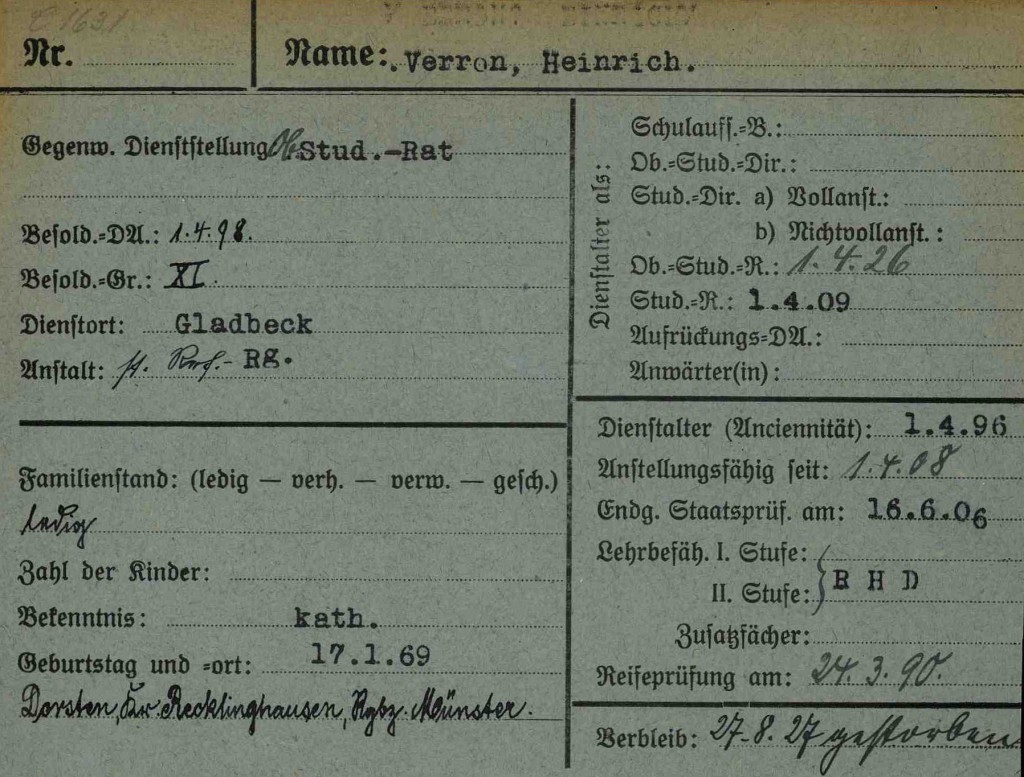 Nr.
Name: Verron, Heinrich.
Gegenw. Dienststellung Ob. Stud.-Rat
Besold.-DA.: 1.4.98.
Besold.-Gr.: XI.
Dienstort: Gladbeck
Anstalt: st. Ref.- RG.
Familienstand: (ledig — verh. — verw. — gesch.)
ledig
Zahl der Kinder:
Bekenntnis: kath.
Geburtstag und =ort: 17.1.69
Dorsten, Kr. Recklinghausen, Rgbz. Münster.
Dienstalter als:
Schulauff.-B.:
Ob.-Stud.-Dir.:
Stud.-Dir. a) Vollanst.:
b) Nichtvollanst.:
Ob.-Stud.-R.: 1.4.26
Stud.-R.: 1.4.09
Aufrückungs-DA.:
Anwärter(in):
Dienstalter (Anciennität): 1.4.96
Anstellungsfähig seit: 1.4.08
Endg. Staatsprüf. am: 16.6.06
Lehrbefäh. I. Stufe:
II. Stufe: R H D
Zusatzfächer:
Reifeprüfung am: 24.3.90.
Verbleib: 27.8.27 gestorben